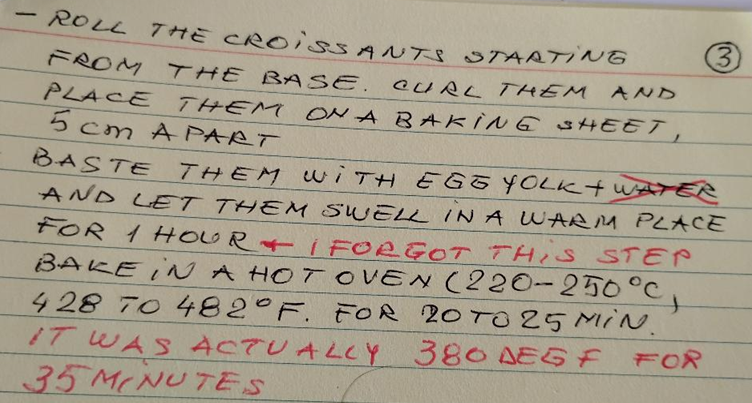 - ROLL THE CROISSANTS STARTING
FROM THE BASE. CURL THEM AND
PLACE THEM ON A BAKING SHEET,
5 cm APART
BASTE THEM WITH EGG YOLK + WATER
AND LET THEM SWELL IN A WARM PLACE
FOR 1 HOUR ← I FORGOT THIS STEP
BAKE IN A HOT OVEN (220-250°C,
428 TO 482°F. FOR 20 TO 25 MIN.
IT WAS ACTUALLY 380 DEG F FOR
35 MINUTES
3